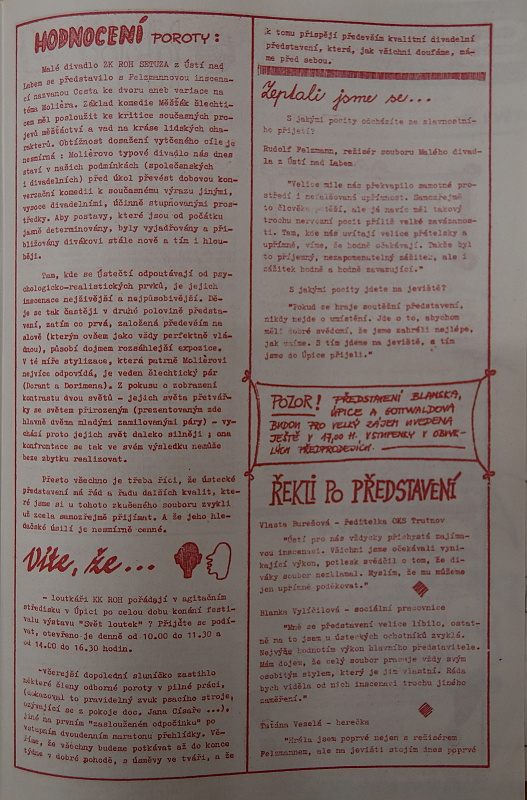 HODNOCENÍ POROTY:
Malé divadlo ZK ROH SETUZA z Ústí nad
Labem se představilo s Felzmannovou inscena-
cí nazvanou Cesta ke dvoru aneb variace na
téma Moliéra. Základ komedie Měšťák šlechti-
cem měl posloužit ke kritice současných pro-
jevů měšťáctví a vad na kráse lidských cha-
rakterů. Obtížnost dosažení vytčeného cíle je
nesmírná : Moliérovo typové divadlo nás dnes
staví v našich podmínkách (společenských
i divadelních) před úkol převést dobovou kon-
verzační komedii k současnému výrazu jinými,
vysoce divadelními, účinně stupňovanými pros-
tředky. Aby postavy, které jsou od počátku
jasně determinovány, byly vyjadřovány a při-
bližovány divákovi stále nově a tím i hlou-
běji.
Tam, kde se Ústečtí odpoutávají od psy-
chologicko-realistických prvků, je jejich
inscenace nejživější a nejpůsobivější. Dě-
je se tak častěji v druhé polovině předsta-
vení, zatím co prvá, založená především na
slově (kterým ovšem jako vždy perfektně vlá-
dnou), působí dojmem rozsáhlejší expozice.
V té míře stylizace, která patrně Moliérovi
nejvíce odpovídá, je veden šlechtický pár
(Dorant a Dorimena). Z pokusu o zobrazení
kontrastu dvou světů - jejich světa přetvář-
ky se světem přirozeným (prezentovaným zde
hlavně dvěma mladými zamilovanými páry) - vy-
chází proto jejich svět daleko silněji ; ona
konfrontace se tak ve svém výsledku nemůže
beze zbytku realizovat.
Přesto všechno je třeba říci, že ústecké
představení má řád a řadu dalších kvalit, kte-
ré jsme si u tohoto zkušeného souboru zvykli
už zcela samozřejmě přijímat. A že jeho hle-
dačské úsilí je nesmírně cenné.
Víte, že...
- loutkáři KK ROH pořádají v agitačním
středisku v Úpici po celou dobu konání festi-
valu výstavu "Svět loutek" ? Přijďte se podí-
vat, otevřeno je denně od 10.00 do 11.30 a
od 14.00 do 16.30 hodin.
-Včerejší dopolední sluníčko zastihlo
některé členy odborné poroty v pilné práci,
(dokazoval to pravidelný zvuk psacího stroje,
ozývající se z pokoje doc. Jana Císaře ...),
jiné na prvním "zaslouženém odpočinku" po
vstupním dvoudenním maratonu přehlídky. Vě-
říme, že všechny budeme potkávat až do konce
týdne v dobré pohodě, s úsměvy ve tváři, a že
k tomu přispějí především kvalitní divadelní
představení, která, jak všichni doufáme, má-
me před sebou.
Zeptali jsme se...
S jakými pocity odcházíte se slavnostní-
ho přijetí?
Rudolf Felzmann, režisér souboru Malého divad-
la z Ústí nad Labem
"Velice mile nás překvapilo samotné pro-
středí i nefalšovaná upřímnost. Samozřejmě
to člověka potěší, ale já navíc měl takový
trochu nervozní pocit příliš velké zavázanos-
ti. Tam, kde nás uvítají velice přátelsky a
upřímně, víme, že hodně očekávají. Takže byl
to příjemný, nezapomenutelný zážitek, ale i
zážitek hodně a hodně zavazující."
S jakými pocity jdete na jeviště?
"Pokud se hraje soutěžní představení,
nikdy nejde o umístění. Jde o to, abychom
měli dobré svědomí, že jsme zahráli nejlépe,
jak umíme. S tím jdeme na jeviště, s tím
jsme do Úpice přijeli."
POZOR! PŘEDSTAVENÍ BLANSKA,
ÚPICE A GOTTWALDOVA
BUDOU PRO VELKÝ ZÁJEM UVEDENA
JEŠTĚ V 17,00 H. VSTUPENKY V OBVYK-
LÝCH PŘEDPRODEJÍCH.
ŘEKLI PO PŘEDSTAVENÍ
Vlasta Burešová - ředitelka OKS Trutnov
"Ústí pro nás vždycky přichystá zajíma-
vou inscenaci. Všichni jsme očekávali vyni-
kající výkon, potlesk svědčil o tom, že di-
váky soubor nezklamal. Myslím, že mu můžeme
jen upřímně poděkovat."
Blanka Vylíčilová - sociální pracovnice
"Mně se představení velice líbilo, ostat-
ně na to jsem u ústeckých ochotníků zvyklá.
Nejvýše hodnotím výkon hlavního představitele.
Mám dojem, že celý soubor pracuje vždy svým
osobitým stylem, který je jim vlastní. Ráda
bych viděla od nich inscenaci trochu jiného
zaměření."
Taťána Veselá - herečka
"Hrála jsem poprvé nejen s režisérem
Felzmannem, ale na jevišti stojím dnes poprvé